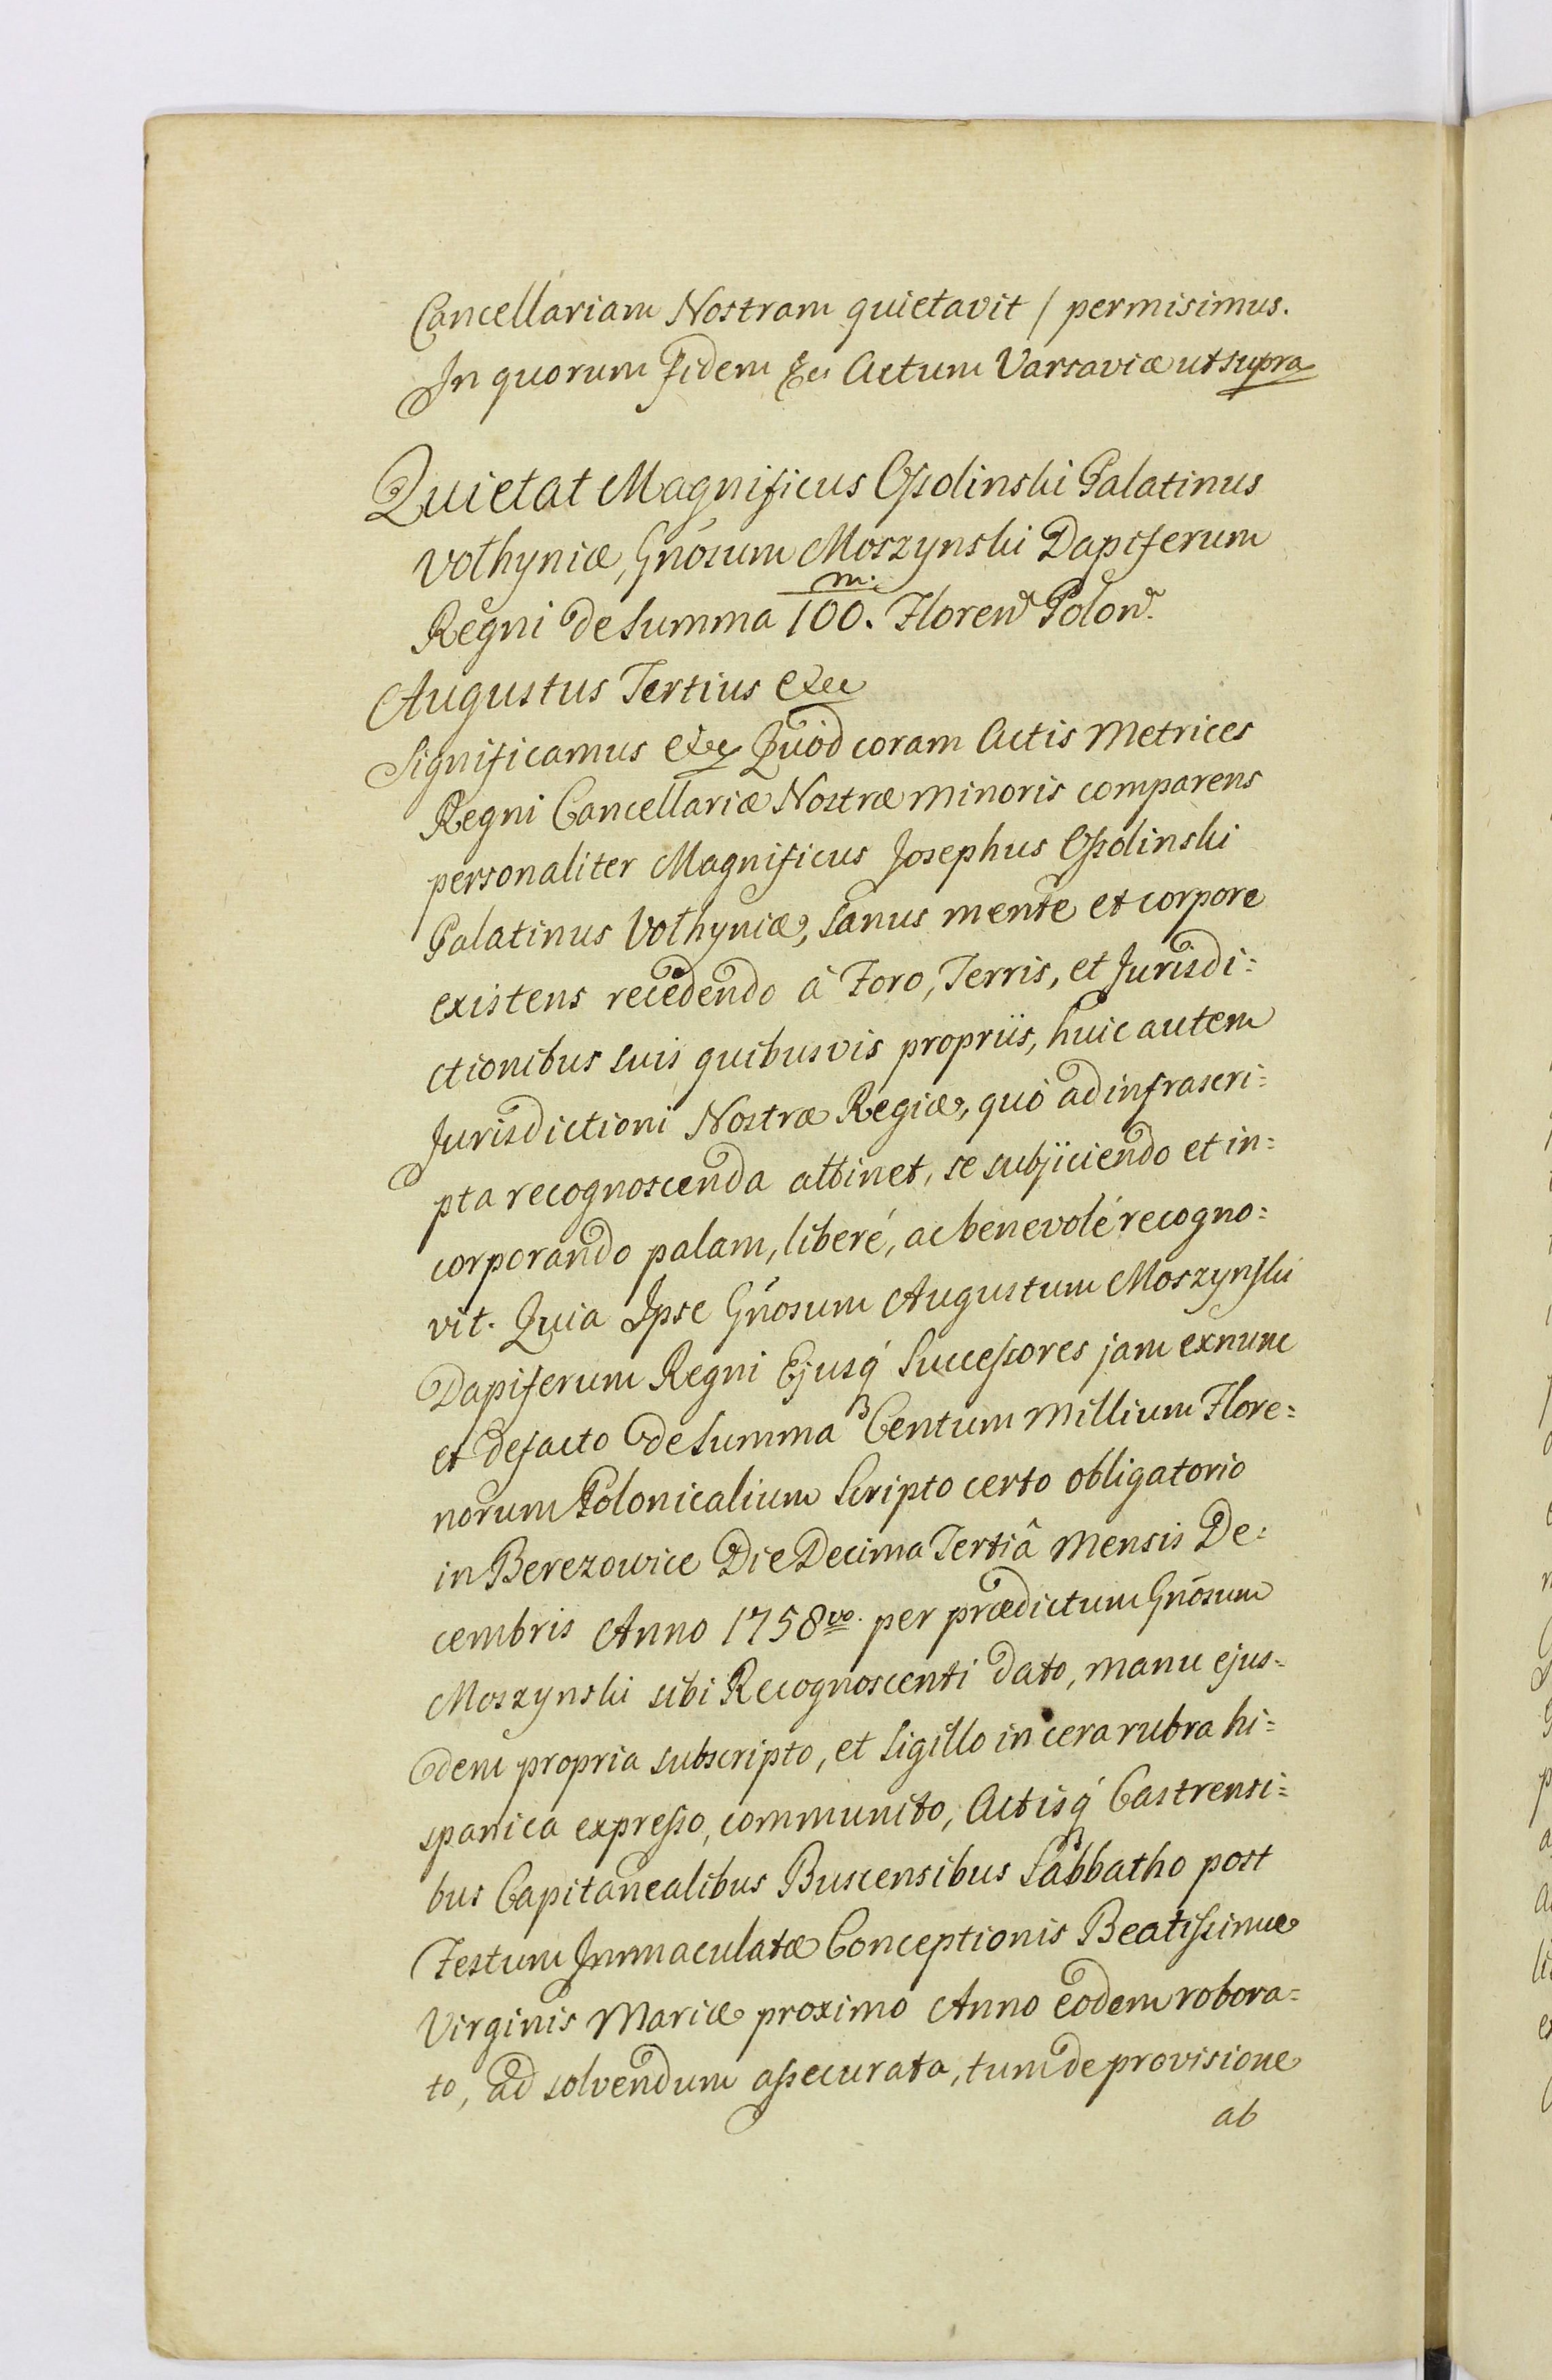 Cancellariam Nostram quietavit / permisimus.
In quorum fidem &c: Actum Varsaviæ ut supra
Quietat Magnificus Ossolinski Palatinus
Volhyniæ, Gnosum Moszynski Dapiferum
Regni de Summa 100.m. Floren Polon.
Augustus Tertius &c
Significamus &c Quòd coram Actis Metrices
Regni Cancellariæ Nostræ minoris comparens
personaliter Magnificus Josephus Ossolinski
Palatinus Volhyniæ, Sanus mente et corpore
existens recedendo à Foro, Terris, et Jurisdi=
ctionibus suis quibusvis propriis, huic autem
Jurisdictioni Nostræ Regiæ, quò ad infrascri=
pta recognoscenda attinet, se subjiciendo et in=
corporando palam, liberé, ac benevolé recogno=
vit. Quia Ipse Gnosum Augustum Moszynski
Dapiferum Regni Ejusq́ Successores jam exnunc
et defacto de Summa Centum Millium Flore=
norum Polonicalium Scripto certo obligatorio
in Berezowice Die Decima Tertiâ Mensis De=
cembris Anno 1758vo. per prædictum Gnosum
Moszynski sibi Recognoscenti dato, manu ejus=
dem propria subscripto, et Sigillo in cera rubra hi=
spanica expresso, communito, Actisq́ Castrensi=
bus Capitanealibus Buscensibus Sabbatho post
Festum Immaculatæ Conceptionis Beatissimæ
Virginis Mariæ proximo Anno eodem robora=
to, ad solvendum assecurata, tum de provisione
ab